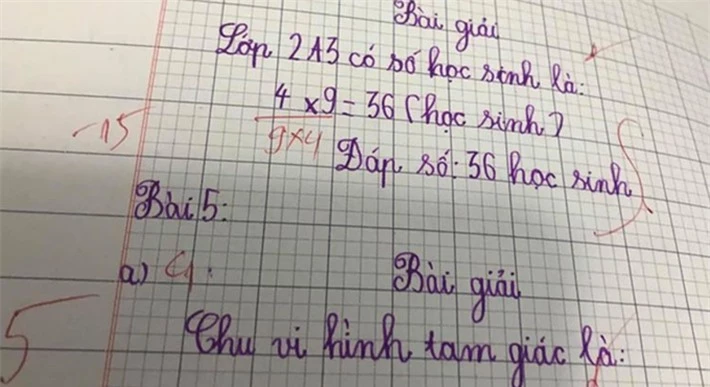 Bài giải
Lớp 2A3 có số học sinh là:
4 x 9 = 36 (học sinh)
-15 9x4 Đáp số: 36 học sinh
Bài 5:
a) Bài giải
5
Chu vi hình tam giác là: